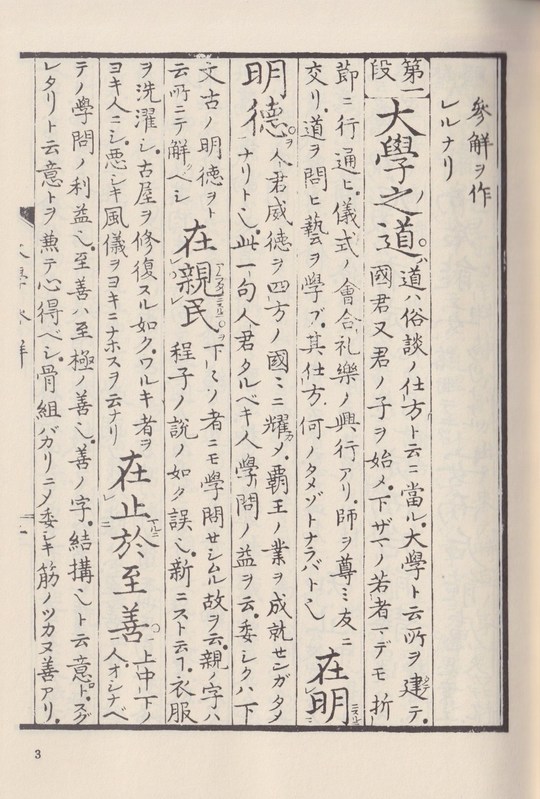 參解ヲ作
レルナリ
第一
段
大學之道。
道ハ俗談ノ仕方ト云ニ當ル。大學ト云所ヲ建テ。
國君又君ノ子ヲ始メ。下ザマノ若者マデモ折
節ニ行通ヒ。儀式ノ會合礼樂ノ興行アリ。師ヲ尊ミ友ニ
交リ。道ヲ問ヒ藝ヲ學ブ。其仕方。何ノタメゾトナラバト也
在明
明德
人君威徳ヲ四方ノ國々ニ耀カメ。覇王ノ業ヲ成就センガタメ
ナリト也。此一句人君タルベキ人學問ノ益ヲ云。委シクハ下
文古ノ明徳ヲト
云所ニテ解ベシ
在親民
下々ノ者ニモ學問セシムル故ヲ云。親ノ字ハ
程子ノ説ノ如ク誤也。新ニスト云フ。衣服
ヲ洗濯シ。古屋ヲ修復スル如ク。ワルキ者ヲ
ヨキ人ニシ。悪シキ風儀ヲヨキニナホスヲ云ナリ
在止於至善
上中下ノ
人。オシナベ
テノ學問ノ利益也。至善ハ至極ノ善也。善ノ字。結構也ト云意ト。スグ
レタリト云意トヲ兼テ心得ベシ。骨組バカリニメ委シキ筋ノツカヌ善アリ。
3